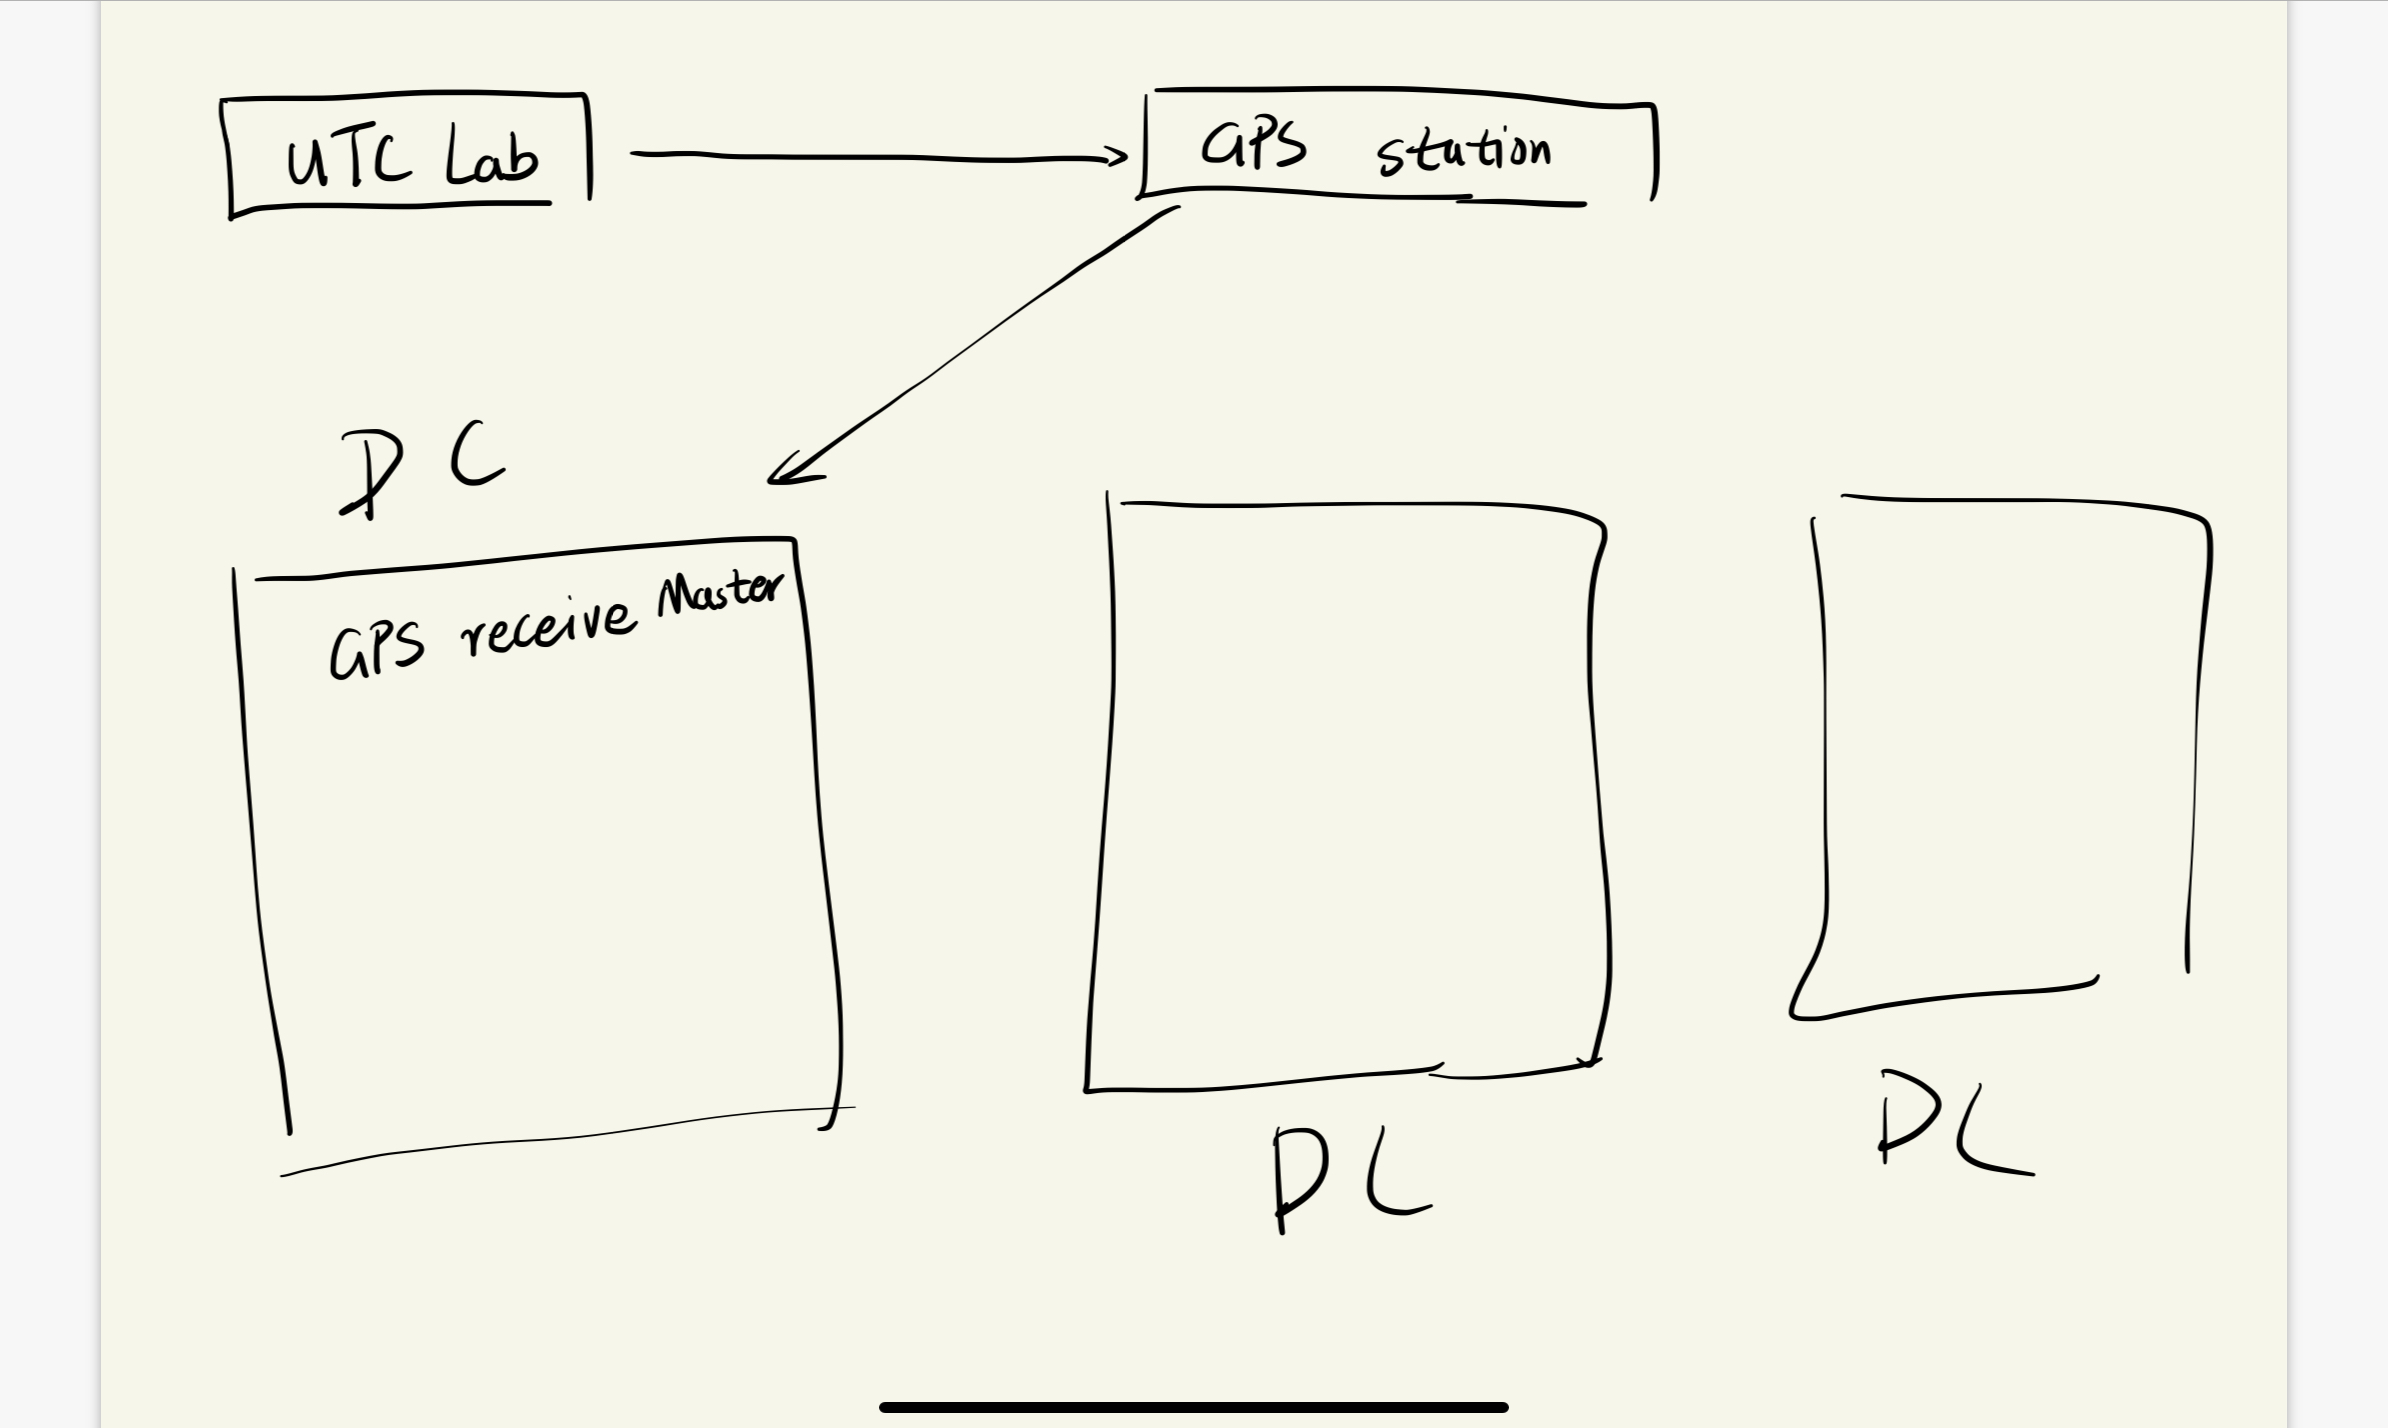 UTC Lab
GPS station
DC
GPS receive Master
DC
DC